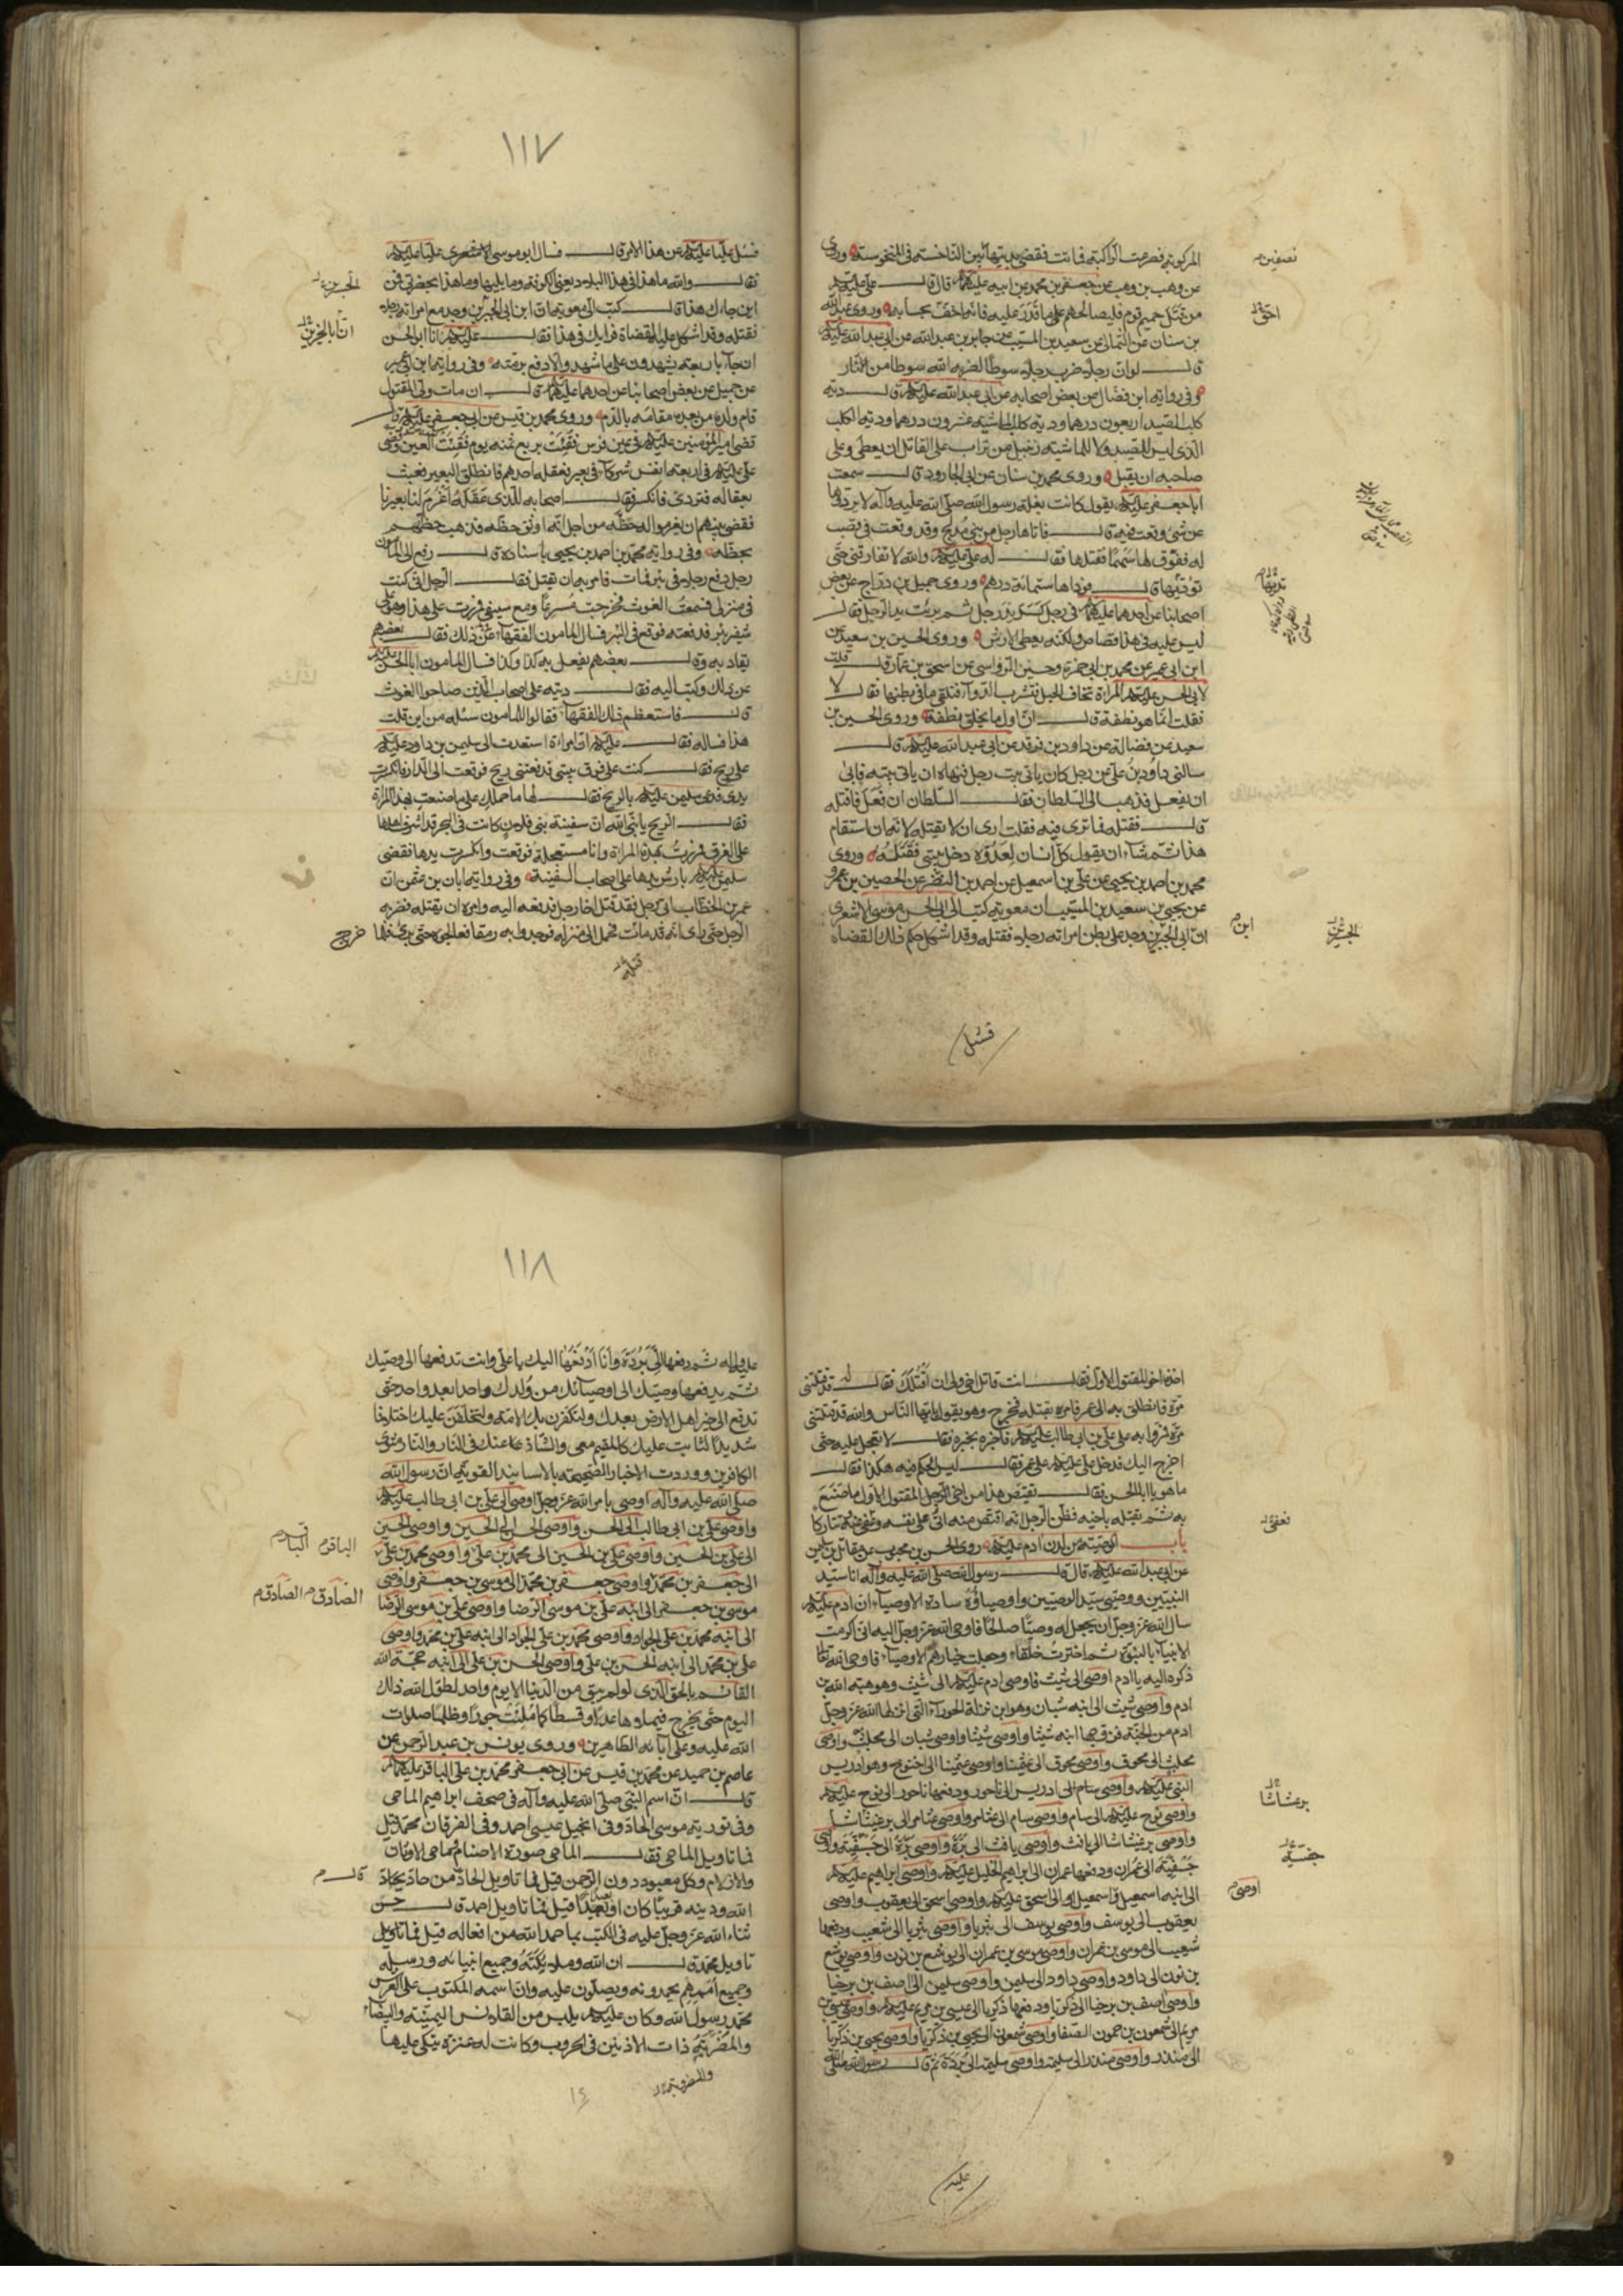 المركوبة فصرعت الراكبة فماتت فقضى بديتها بين الناخسة والمنخوسة وروى
عن وهب بن وهب عن جعفر بن محمد عن ابيه عليهما قال قال على عليه
من قتل حميم قوم فليصالحهم على ما قدر عليه فانه اخف بحسابه وروى عبد الله
بن سنان عن الثمالى عن سعيد بن المسيب عن جابر بن عبد الله عن ابى عبد الله عليه
قال لو ان رجلا ضرب رجلا سوطا لضربه الله سوطا من النار
وفى رواية ابن فضال عن بعض اصحابه عن ابى عبد الله عليه قال دية
كلب الصيد اربعون درهما ودية كلب الماشية عشرون درهما ودية الكلب
الذى ليس للصيد ولا للماشية زنبيل من تراب على القاتل ان يعطى وعلى
صاحبه ان يقبل وروى محمد بن سنان عن ابى الجارود قال سمعت
ابا جعفر عليه يقول كانت بغلة رسول الله صلى الله عليه وآله لا يردوها
عن شئ وقعت فيه قال فاتاها رجل من بنى مدلج وقد وقعت فى قصب
له ففوق لها سهما فقتلها فقال له على عليه والله لا تفارقنى حتى
توديها قال فوداها ستمائة درهم وروى جميل بن دراج عن بعض
اصحابنا عن احدهما عليهما فى رجل كسر يد رجل ثم برئت يد الرجل فقال
ليس عليه فى هذا قصاص ولكنه يعطى الارش وروى الحسين بن سعيد عن
ابن ابى عمير عن محمد بن ابى حمزة وحسين الرواسى عن اسحق بن عمار قال قلت
لابى الحسن عليه المراة تخاف الحبل فتشرب الدواء فتلقى ما فى بطنها فقال لا
فقلت انما هو نطفة قال ان اول ما يخلق نطفة وروى الحسين بن
سعيد عن فضالة عن داود بن فرقد عن ابى عبد الله عليه قال
سالنى داود بن على عن رجل كان ياتى بيت رجل فنهاه ان ياتى بيته فابى
ان يفعل فذهب الى السلطان فقال السلطان ان فعل فاقتله
قال فقتله فما ترى فيه فقلت ارى ان لا يقتله لانه ان استقام
هذا ثم شاء ان يقول كل انسان لعدوه دخل بيتى فقتلته وروى
محمد بن احمد بن يحيى عن على بن اسمعيل عن احمد بن النضر عن الحصين بن عمرو
عن يحيى بن سعيد بن المسيب ان معوية كتب الى ابى الحسن موسى الاشعرى
ان ابى الجسرين وجد على بطن امراته رجلا فقتله وقد اشكل حكم ذلك القضاة
نصفين
احق
ابن
فسئل
١١٧
فسئل عليا عليه عن هذا الامر قال فسال ابو موسى الاشعرى عليا عليه
فقال والله ما هذا فى هذا البلاد يعنى الكوفة وما يليها وما هذا بحضرتى فمن
اين جاءك هذا قال كتب الى معوية ان ابن ابى الجسرين وجد مع امراته رجلا
فقتله وقد اشكل عليه القضاة فرايك فى هذا فقال عليه انا ابو الحسن
ان جاء باربعة يشهدون على ما شهد والا دفع برمته وفى رواية ابن ابى عمير
عن جميل عن بعض اصحابنا عن احدهما عليهما قال ان مات ولى المقتول
قام ولده من بعده مقامه بالدم وروى محمد بن قيس عن ابى جعفر عليه قال
قضى امير المؤمنين عليه فى عين فرس فقئت بربع ثمنه يوم فقئت العين وقضى
على عليه فى اربعة انفس شركاء فى بعير فعقله احدهم فانطلق البعير فعبث
بعقاله فتردى فانكسر فقال اصحابه للذى عقله اغرم لنا بعيرنا
فقضى بينهم ان يغرموا له حظه من اجل انه اوثق حظه فذهب حظهم
بحظه وفى رواية محمد بن احمد بن يحيى باسناده قال رفع الى المامون
رجل دفع رجلا فى بئر فمات فامر به ان يقتل فقال الرجل انى كنت
فى منزلى فسمعت الغوث فخرجت مسرعا ومع سيفى فمررت على هذا وهو على
شفير بئر فدفعته فوقع فى البئر فسال المامون الفقهاء عن ذلك فقال بعضهم
يقاد به وقال بعضهم يفعل به كذا وكذا فسال المامون ابا الحسن
عن ذلك وكتب اليه فقال ديته على اصحاب الذين صاحوا الغوث
قال فاستعظم ذلك الفقهاء فقالوا للمامون سئله من اين قلت
هذا فساله فقال عليه ان امراة استعدت الى سليمن بن داود عليه
على ريح فقال كنت على فوق بيتى فدفعتنى ريح فوقعت الى الدار فانكسرت
يدى فدعى سليمن عليه بالريح فقال لها ما حملك على ما صنعت بهذه المراة
فقال الريح يا نبى الله ان سفينة بنى فلان كانت فى البحر قد اشرف اهلها
على الغرق فمررت بهذه المراة وانا مستعجلة فوقعت وانكسرت يدها فقضى
سليمن عليه بارش يدها على اصحاب السفينة وفى رواية ابان بن عثمن ان
عمر بن الخطاب اتى برجل قد قتل اخا رجل فدفعه اليه وامره ان يقتله فضربه
الرجل حتى راى انه قد مات فحمل الى منزله فوجدوا به رمقا فعالجوه حتى برئ فلما خرج
ان ابا الجسرين
اخذه اخو المقتول الاول فقال انت قاتل اخى ولى ان اقتلك فقال له قد قتلتنى
مرة فانطلق به الى عمر فامره بقتله فخرج وهو يقول يا ايها الناس والله قد قتلنى
مرة فمروا به على على بن ابى طالب عليه فاخبره بخبره فقال لا تعجل عليه حتى
اخرج اليك فدخل على عليه على عمر فقال ليس الحكم فيه هكذا فقال
ما هو يا ابا الحسن فقال يقتص هذا من اخى الرجل المقتول الاول ما صنع
به ثم يقتله باخيه فظن الرجل انه ان اقتص منه اتى على نفسه وعفى عنه وتتاركا
باب الوصية من لدن آدم عليه روى الحسن بن محبوب عن مقاتل بن سليمن
عن ابى عبد الله عليه قال قال رسول الله صلى الله عليه وآله انا سيد
النبيين ووصيى سيد الوصيين واوصياؤه سادة الاوصياء ان ادم عليه
سال الله عز وجل ان يجعل له وصيا صالحا فاوحى الله عز وجل اليه انى اكرمت
الانبياء بالنبوة ثم اخترت خلقا وجعلت خيارهم الاوصياء فاوحى الله تعالى
ذكره اليه يا ادم اوصى الى شيث فاوصى ادم عليه الى شيث وهو هبة الله بن
ادم واوصى شيث الى ابنه شبان وهو ابن نزلة الحوراء التى انزلها الله عز وجل
ادم من الجنة فزوجها ابنه شيثا واوصى شبان الى محلث واوصى
محلث الى محوق واوصى محوق الى عثميثا واوصى عثميثا الى اخنوخ وهو ادريس
النبى عليه واوصى ادريس الى ناحور ودفعها ناحور الى نوح عليه
واوصى نوح عليه الى سام واوصى سام الى عثامر واوصى عثامر الى برغيثاشا
واوصى برغيثاشا الى يافث واوصى يافث الى برة واوصى برة الى جفسية واوصى
جفسية الى عمران ودفعها عمران الى ابراهيم الخليل عليه واوصى ابراهيم عليه
الى ابنه اسمعيل واسمعيل الى اسحق عليه واوصى اسحق الى يعقوب واوصى
يعقوب الى يوسف واوصى يوسف الى بثريا واوصى بثريا الى شعيب ودفعها
شعيب الى موسى بن عمران واوصى موسى بن عمران الى يوشع بن نون واوصى يوشع
بن نون الى داود واوصى داود الى سليمن واوصى سليمن الى اصف بن برخيا
واوصى اصف بن برخيا الى زكريا ودفعها زكريا الى عيسى بن مريم عليه واوصى عيسى بن
مريم الى شمعون بن حمون الصفا واوصى شمعون الى يحيى بن زكريا واوصى يحيى بن زكريا
الى منذر واوصى منذر الى سليمة واوصى سليمة الى بردة ثم قال رسول الله صلى الله
برعثاشا
جفسية
اوصى
عليه
١١٨
عليه واله ثم دفعها الى بردة وانا ادفعها اليك يا على وانت تدفعها الى وصيك
ثم يدفعها وصيك الى اوصيائك من ولدك واحدا بعد واحد حتى
تدفع الى خير اهل الارض بعدك ولتكفرن بك الامة ولتختلفن عليك اختلافا
شديدا الثابت عليك كالمقيم معى والشاذ عنك فى النار والنار مثوى
الكافرين ووردت الاخبار الصحيحة بالاسانيد القوية ان رسول الله
صلى الله عليه وآله اوصى بامر الله عز وجل اوصى الى على بن ابى طالب عليه
واوصى على بن ابى طالب الى الحسن واوصى الحسن الى الحسين واوصى الحسين
الى على بن الحسين واوصى على بن الحسين الى محمد بن على واوصى محمد بن على
الى جعفر بن محمد واوصى جعفر بن محمد الى موسى بن جعفر واوصى
موسى بن جعفر الى ابنه على بن موسى الرضا واوصى على بن موسى الرضا
الى ابنه محمد بن على الجواد واوصى محمد بن على الجواد الى ابنه على بن محمد واوصى
على بن محمد الى ابنه الحسن بن على واوصى الحسن بن على الى ابنه حجة الله
القائم بالحق الذى لو لم يبق من الدنيا الا يوم واحد لطول الله ذلك
اليوم حتى يخرج فيملاها عدلا وقسطا كما ملئت جورا وظلما صلوات
الله عليه وعلى آبائه الطاهرين وروى يونس بن عبد الرحمن عن
عاصم بن حميد عن محمد بن قيس عن ابى جعفر محمد بن على الباقر عليهما
قال ان اسم النبى صلى الله عليه وآله فى صحف ابراهيم الماحى
وفى تورية موسى الحاد وفى انجيل عيسى احمد وفى الفرقان محمد قيل
فما تاويل الماحى فقال الماحى صورة الاصنام ماحى الاوثان
والازلام وكل معبود دون الرحمن قيل فما تاويل الحاد قال من حاد يحاد
الله ودينه قريبا كان او بعيدا قيل فما تاويل احمد قال حسن
ثناء الله عز وجل عليه فى الكتب بما حمد الله من افعاله قيل فما تاويل
تاويل محمد قال ان الله وملائكته وجميع انبيائه ورسله
وجميع اممهم يحمدونه ويصلون عليه وان اسمه المكتوب على العرش
محمد رسول الله وكان عليه يلبس من القلانس اليمنية والبيضاء
والمضربة ذات الاذنين فى الحروب وكانت له عنزة يتكى عليها
الباقر
الصادق الصادق
والمضربة